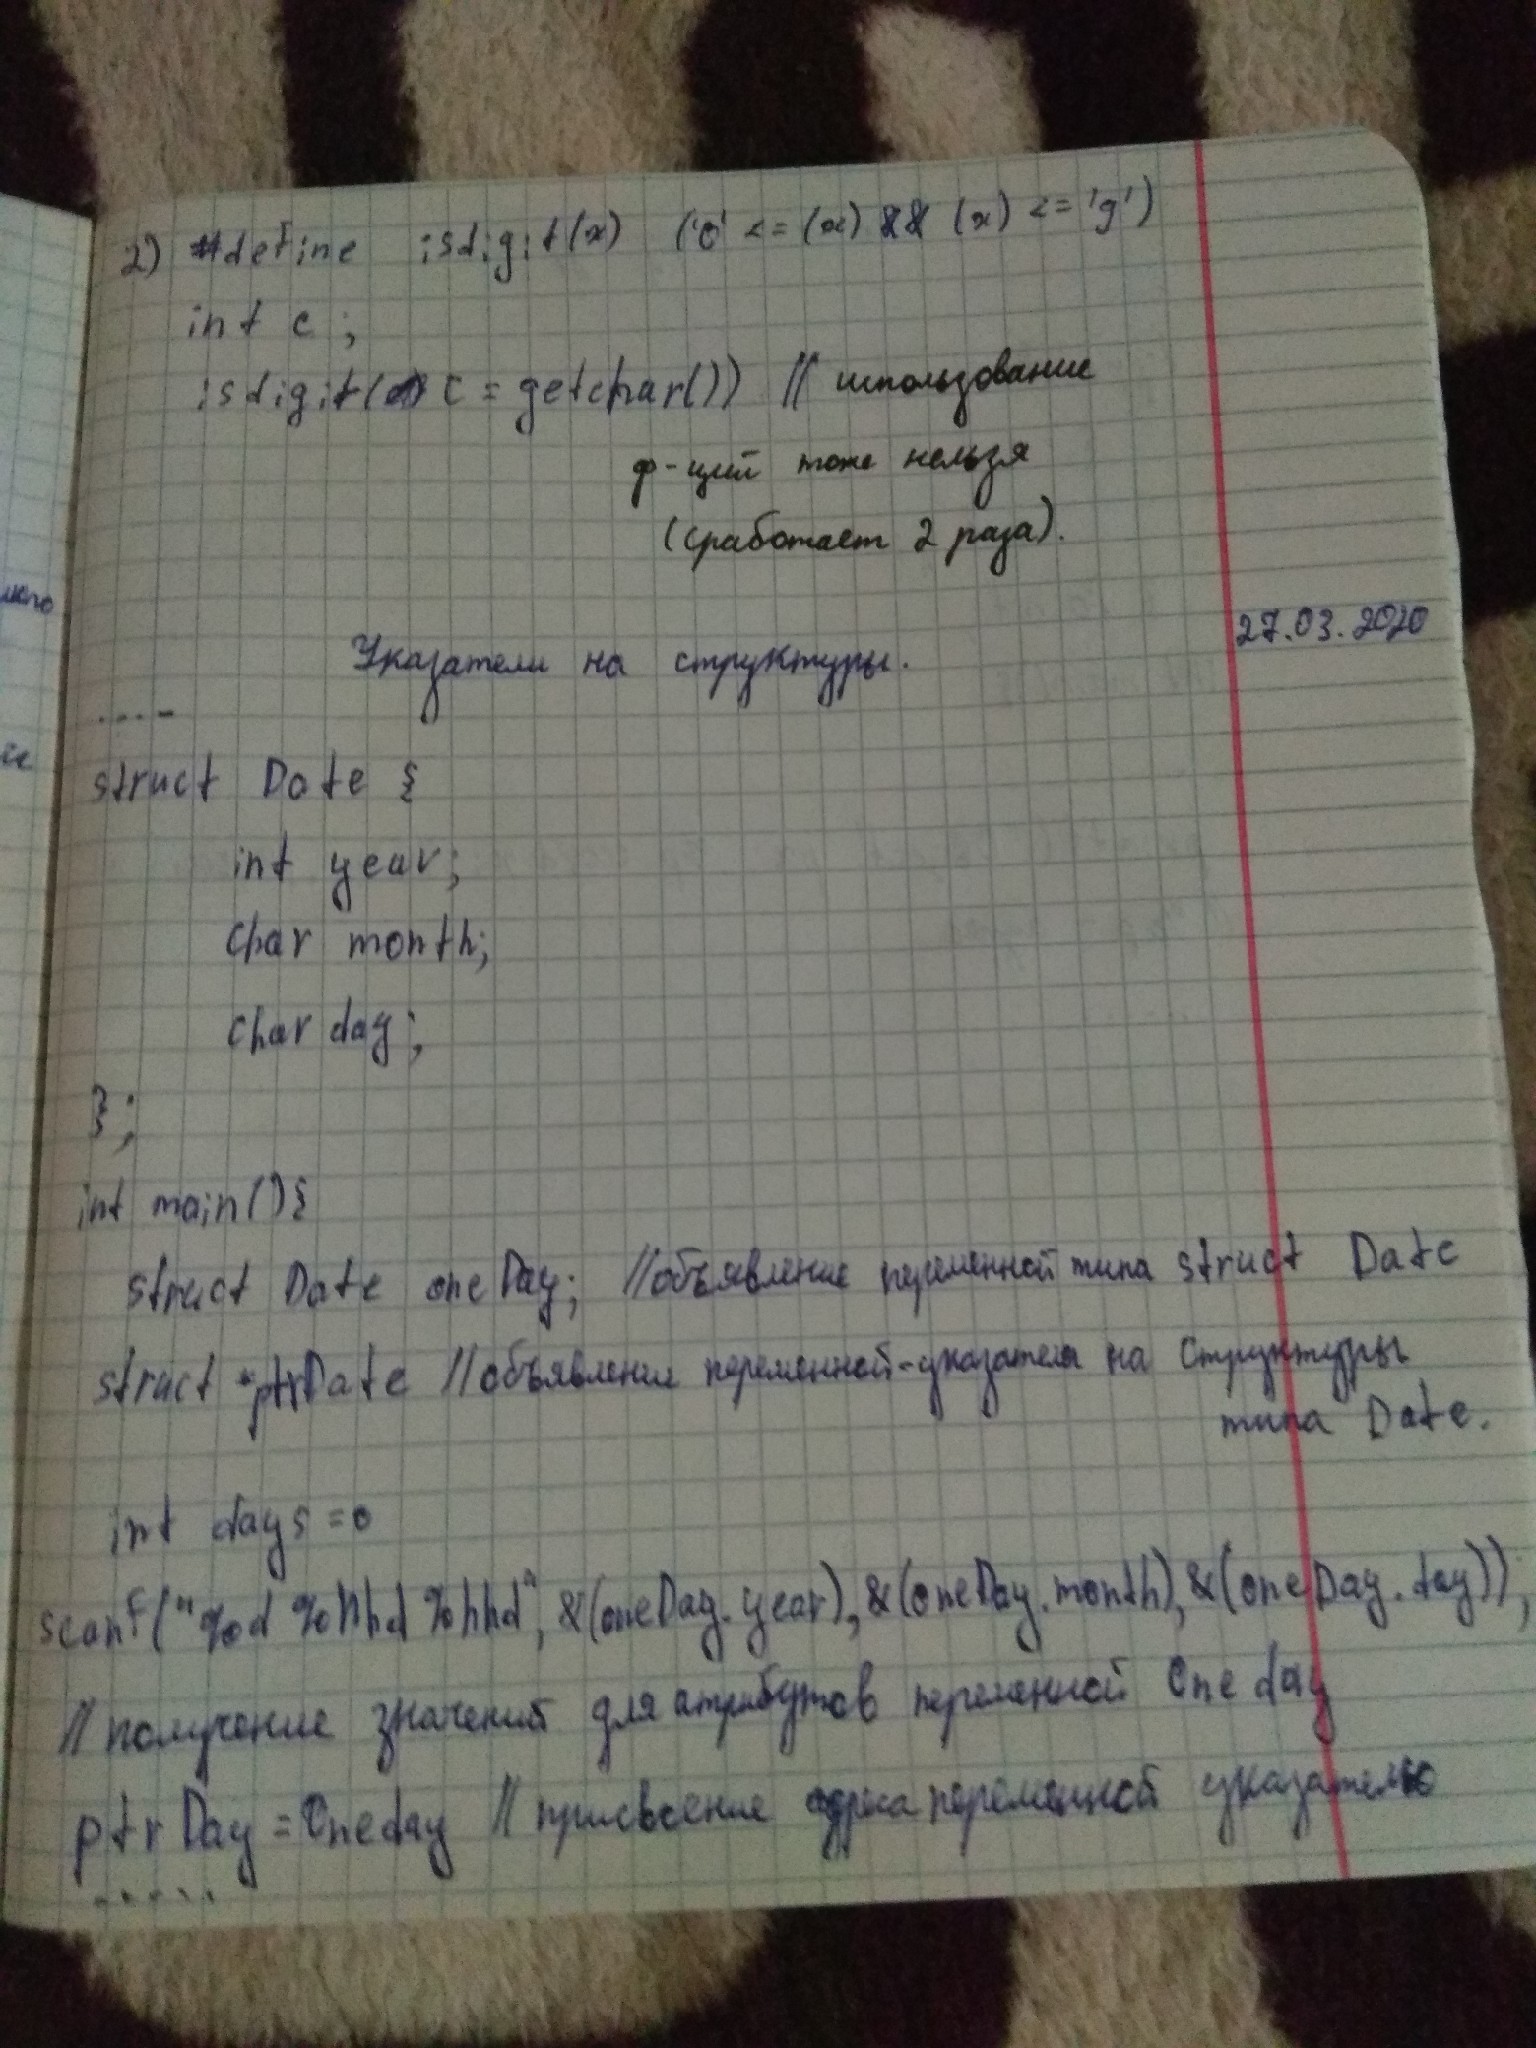 2) #define isdigit(x) ('0' <= (x) && (x) <= '9')
int c;
isdigit(c = getchar()) // использование
ф-ций тоже нельзя
(сработает 2 раза).
27.03.2020
Указатели на структуры.
....
struct Date {
int year;
char month;
char day;
};
int main(){
struct Date oneDay; //объявление переменной типа struct Date
struct *ptrDate //объявление переменной-указателя на структуры
типа Date.
int days = 0
scanf("%d %hhd %hhd", &(oneDay.year), &(oneDay.month), &(oneDay.day));
//получение значений для атрибутов переменной Oneday
ptrDay = Oneday // присвоение адреса переменной указателю
.....